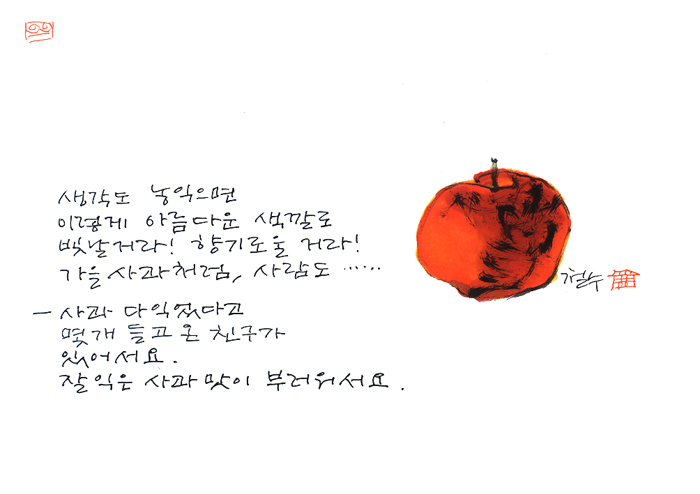 생각도 농익으면
이렇게 아름다운 색깔로
빛날거라! 향기로울 거라!
가을 사과처럼, 사람도 ······
— 사과 다 익었다고
몇개 들고 온 친구가
있어서요.
잘 익은 사과 맛이 부러워서요.
철수